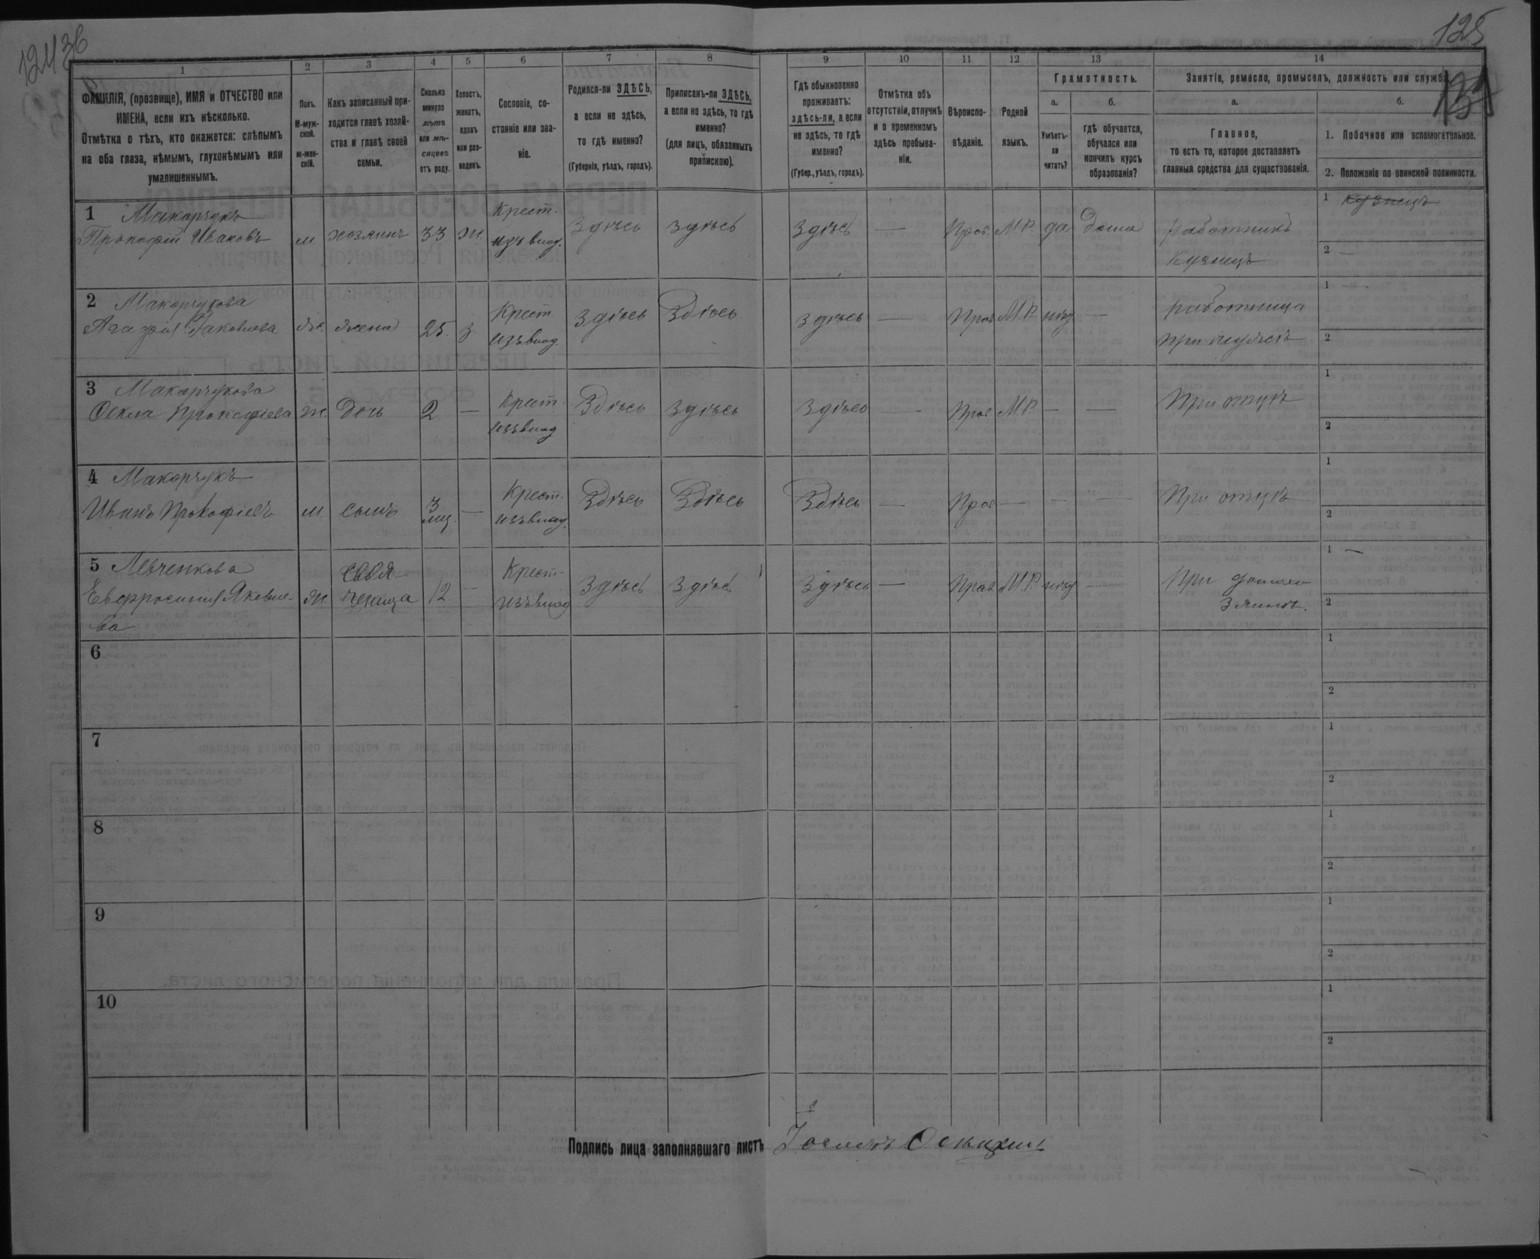 12436
125
1
2
3
4
5
6
7
8
9
10
11
12
13
14
ФАМИЛІЯ, (прозвище), ИМЯ и ОТЧЕСТВО или
ИМЕНА, если ихъ нѣсколько.
Отмѣтка о тѣхъ, кто окажется: слѣпымъ
на оба глаза, нѣмымъ, глухонѣмымъ или
умалишеннымъ.
Полъ.
М-муж-
ской.
Ж-жен-
скій.
Какъ записанный при-
ходится главѣ хозяй-
ства и главѣ своей
семьи.
Сколько
минуло
лѣтъ
или мѣ-
сяцевъ
отъ роду.
Холостъ,
женатъ,
вдовъ
или раз-
веденъ.
Сословіе, со-
стояніе или зва-
ніе.
Родился-ли ЗДѢСЬ,
а если не здѣсь,
то гдѣ именно?
(Губернія, уѣздъ, городъ).
Приписанъ-ли ЗДѢСЬ,
а если не здѣсь, то гдѣ
именно?
(для лицъ, обязанныхъ
припискою).
Гдѣ обыкновенно
проживаетъ:
здѣсь-ли, а если
не здѣсь, то гдѣ
именно?
(Губер., уѣздъ, городъ).
Отмѣтка объ
отсутствіи, отлучкѣ
и о временномъ
здѣсь пребыва-
ніи.
Вѣроиспо-
вѣданіе.
Родной
языкъ.
Грамотность.
а.
б.
Умѣетъ-
ли
читать?
гдѣ обучается,
обучался или
кончилъ курсъ
образованія?
Занятіе, ремесло, промыселъ, должность или служба.
а.
б.
Главное,
то есть то, которое доставляетъ
главныя средства для существованія.
1. Побочное или вспомогательное.
2. Положеніе по воинской повинности.
1 Макарчукъ
Прокофій Ивановъ м хозяинъ 33 ж Крест. изъ влад. Здѣсь здѣсь здѣсь — Прав. М.Р. да дома работникъ
кузнецъ
1 кузнецъ
2 —
2 Макарчукова
Яковлева жк жена 25 з Крест изъ влад Здѣсь Здѣсь здѣсь — Прав М.Р. нѣу — работница
при мужѣ
1 —
2
3 Макарчукова
Фекла Прокофіева ж Дочь 2 — Крест изъ влад Здѣсь здѣсь здѣсь — Прав М.Р. — — При отцѣ
1
2
4 Макарчукъ
Иванъ Прокофіевъ м сынъ 3 мц. — Крест. изъ влад. Здѣсь Здѣсь Здѣсь — Прав — — — При отцѣ
1
2
5 Левченкова
Евфросинія Яковле-
ва ж своя-
ченица 12 — Крест- изъ влад Здѣсь здѣсь здѣсь — Прав М.Р. нѣу — При
1 —
2
6
1
2
7
1
2
8
1
2
9
1
2
10
1
2
Подпись лица заполнявшаго листъ